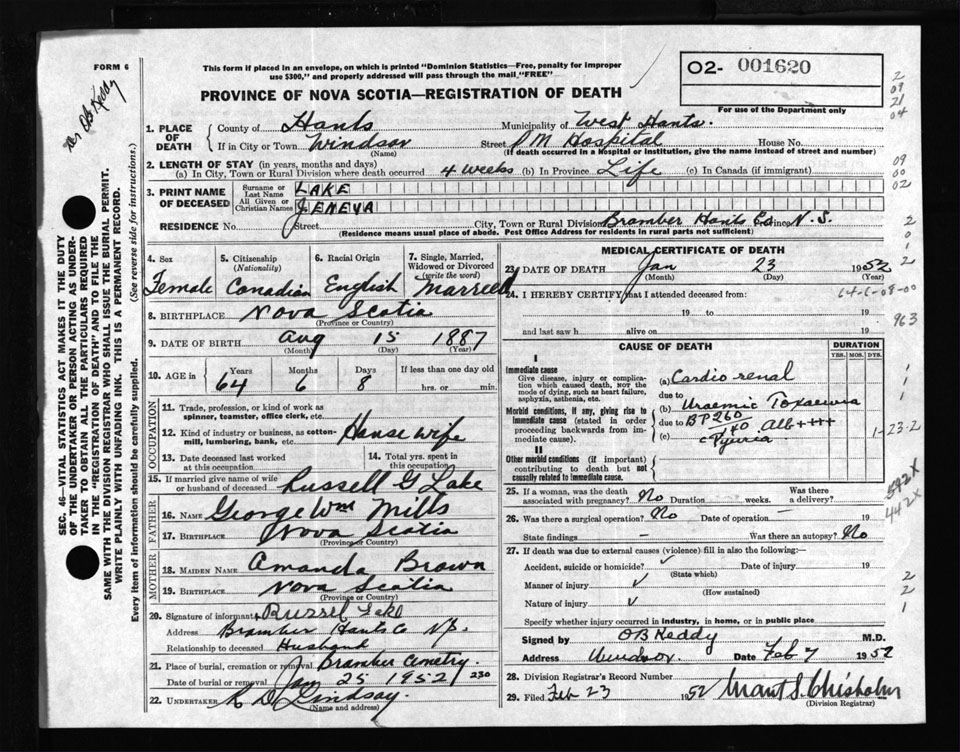 FORM 6
This form if placed in an envelope, on which is printed "Dominion Statistics—Free, penalty for improper
use $300," and properly addressed will pass through the mail "FREE"
O2- 001620
PROVINCE OF NOVA SCOTIA—REGISTRATION OF DEATH
For use of the Department only
SEC. 46—VITAL STATISTICS ACT MAKES IT THE DUTY
OF THE UNDERTAKER OR PERSON ACTING AS UNDER-
TAKER TO OBTAIN ALL THE PARTICULARS REQUIRED
IN THE "REGISTRATION OF DEATH" AND TO FILE THE
SAME WITH THE DIVISION REGISTRAR WHO SHALL ISSUE THE BURIAL PERMIT.
WRITE PLAINLY WITH UNFADING INK. THIS IS A PERMANENT RECORD.
Every item of information should be carefully supplied. (See reverse side for instructions.)
1. PLACE OF DEATH County of Hants Municipality of West Hants.
If in City or Town Windsor (Name) Street P M Hospital House No.
(If death occurred in a Hospital or institution, give the name instead of street and number)
2. LENGTH OF STAY (in years, months and days)
(a) In City, Town or Rural Division where death occurred 4 weeks (b) In Province Life (c) In Canada (if immigrant)
3. PRINT NAME OF DECEASED Surname or Last Name LAKE
All Given or Christian Names JENEVA
RESIDENCE No. Street City, Town or Rural Division Bramber Hants Co Province N.S.
(Residence means usual place of abode. Post Office Address for residents in rural parts not sufficient)
4. Sex 5. Citizenship (Nationality) 6. Racial Origin 7. Single, Married, Widowed or Divorced (write the word)
Female Canadian English Married
8. BIRTHPLACE Nova Scotia
(Province or Country)
9. DATE OF BIRTH Aug 15 1887
(Month) (Day) (Year)
10. AGE in Years Months Days If less than one day old
64 6 8 hrs. or min.
OCCUPATION
11. Trade, profession, or kind of work as spinner, teamster, office clerk, etc.
12. Kind of industry or business, as cotton-mill, lumbering, bank, etc. House wife
13. Date deceased last worked at this occupation 14. Total yrs. spent in this occupation
15. If married give name of wife or husband of deceased Russell G Lake
FATHER
16. NAME George Wm Mills
17. BIRTHPLACE Nova Scotia
(Province or Country)
MOTHER
18. MAIDEN NAME Amanda Brown
19. BIRTHPLACE Nova Scotia
(Province or Country)
20. Signature of informant Russel Lake
Address Bramber Hants Co N.S.
Relationship to deceased Husband
21. Place of burial, cremation or removal Bramber Cemetry.
Date of burial or removal Jan 25 1952 230
22. UNDERTAKER K D Lindsay.
(Name and address)
MEDICAL CERTIFICATE OF DEATH
23. DATE OF DEATH Jan 23 1952
(Month) (Day) (Year)
24. I HEREBY CERTIFY that I attended deceased from: 64-6-08-00
19 to 19
and last saw h alive on 19
963
CAUSE OF DEATH DURATION
YRS. MOS. DYS.
I
Immediate cause
Give disease, injury or complication which caused death, NOT the mode of dying, such as heart failure, asphyxia, asthenia, etc.
(a) Cardio renal
due to
Morbid conditions, if any, giving rise to immediate cause (stated in order proceeding backwards from immediate cause).
(b) Uraemic Toxaemia
due to BP 260/140 Alb ++++
(c) c Pyuria
1-23-2
II
Other morbid conditions (if important) contributing to death but not causally related to immediate cause.
25. If a woman, was the death associated with pregnancy? No Duration weeks. Was there a delivery? -
592X
442X
26. Was there a surgical operation? No Date of operation - 19
State findings - Was there an autopsy? No
27. If death was due to external causes (violence) fill in also the following:—
Accident, suicide or homicide? Date of injury 19
(State which)
Manner of injury
(How sustained)
Nature of injury
Specify whether injury occurred in industry, in home, or in public place
Signed by OB Keddy M.D.
Address Windsor. Date Feb 7 1952
28. Division Registrar's Record Number
29. Filed Feb 23 1952 Grant S. Chisholm
(Division Registrar)